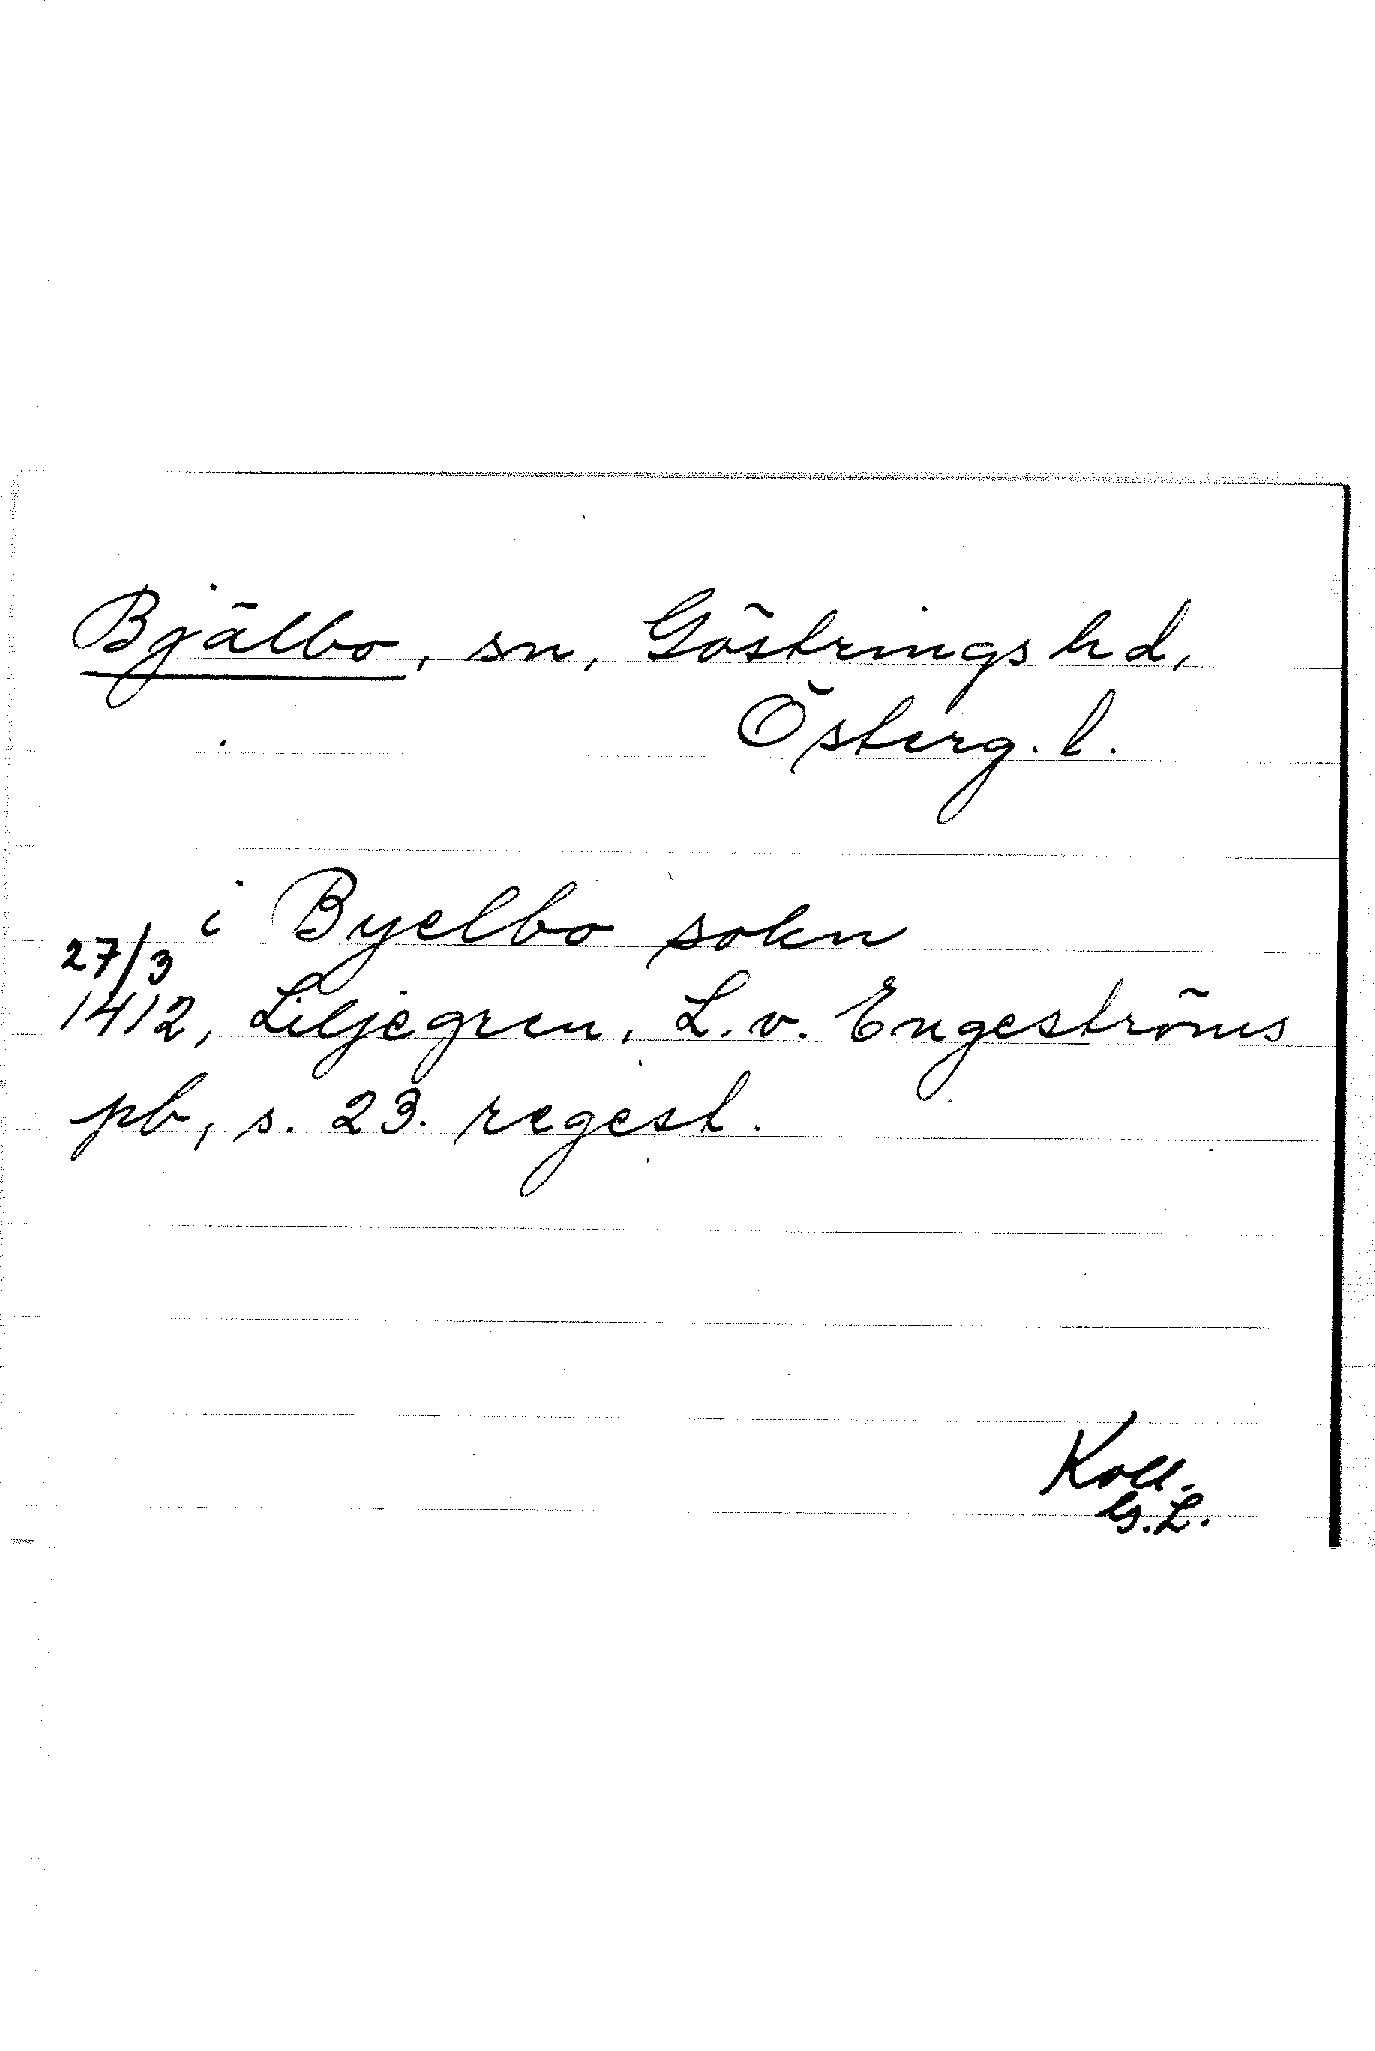 Bjälbo, sn, Göstrings hd,
Österg. l.
i Byelbo sokn
27/3
1412, Liljegren, L. v. Engeströms
pb, s. 23. regest.
Koll.
G. L.